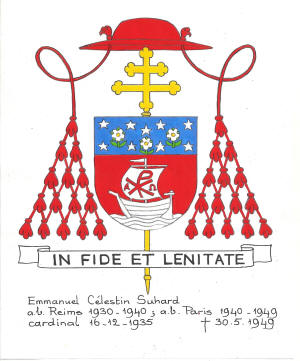 IN FIDE ET LENITATE
Emmanuel Célestin Suhard
a.b. Reims 1930-1940 ; a.b. Paris 1940-1949
cardinal 16-12-1935 † 30.5.1949